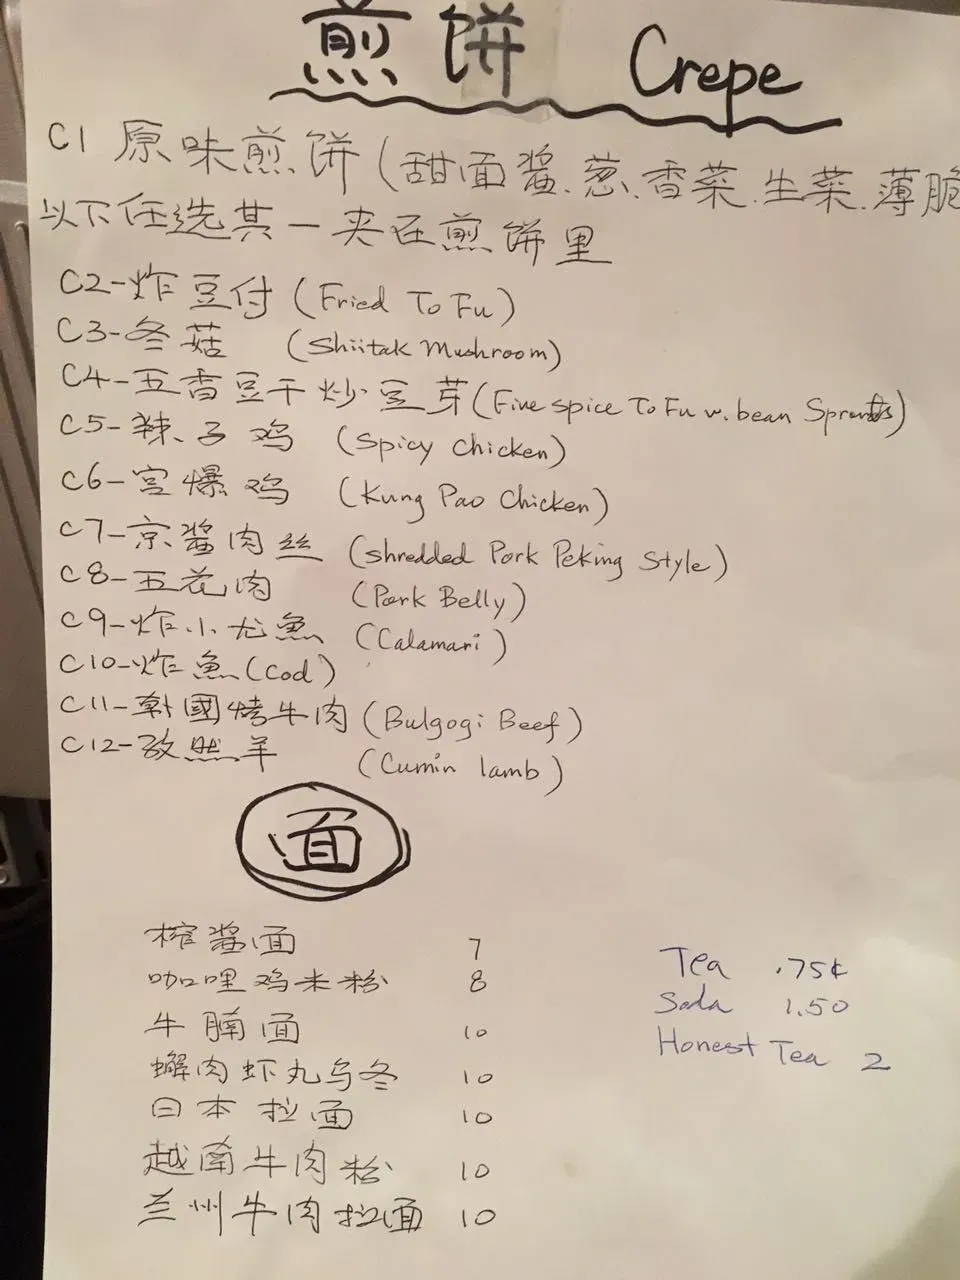 煎饼 Crepe
C1 原味煎饼(甜面酱.葱.香菜.生菜.薄脆
以下任选其一夹在煎饼里
C2-炸豆付 (Fried To Fu)
C3-冬菇 (Shiitak Mushroom)
C4-五香豆干炒豆芽(Five spice To Fu w. bean Sprouts)
C5-辣子鸡 (Spicy Chicken)
C6-宫爆鸡 (Kung Pao Chicken)
C7-京酱肉丝 (shredded Pork Peking Style)
C8-五花肉 (Pork Belly)
C9-炸小龙魚 (Calamari)
C10-炸魚(Cod)
C11-韩國烤牛肉(Bulgogi Beef)
C12-孜然羊 (Cumin lamb)
面
榨酱面 7
咖哩鸡米粉 8
牛腩面 10
蟹肉虾丸乌冬 10
日本拉面 10
越南牛肉粉 10
兰州牛肉拉面 10
Tea .75¢
Soda 1.50
Honest Tea 2